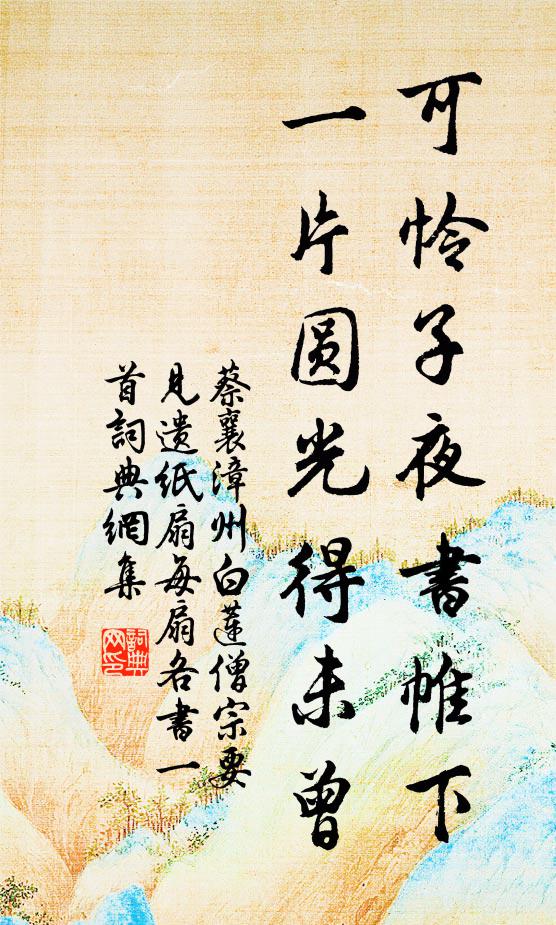 可怜子夜书帷下
一片圆光得未曾
蔡襄漳州白莲僧宗要
见遗纸扇每扇各书一
首词典网集
词典网印